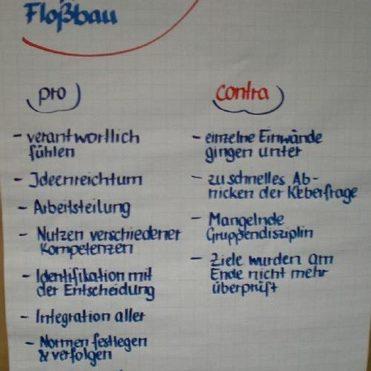 Floßbau
pro
- verantwortlich
fühlen
- Ideenreichtum
- Arbeitsteilung
- Nutzen verschiedener
Kompetenzen
- Identifikation mit
der Entscheidung
- Integration aller
- Normen festlegen
& verfolgen
contra
- einzelne Einwände
gingen unter
- zu schnelles Ab-
nicken der Keberfrage
- Mangelnde
Gruppendisziplin
- Ziele wurden am
Ende nicht mehr
überprüft